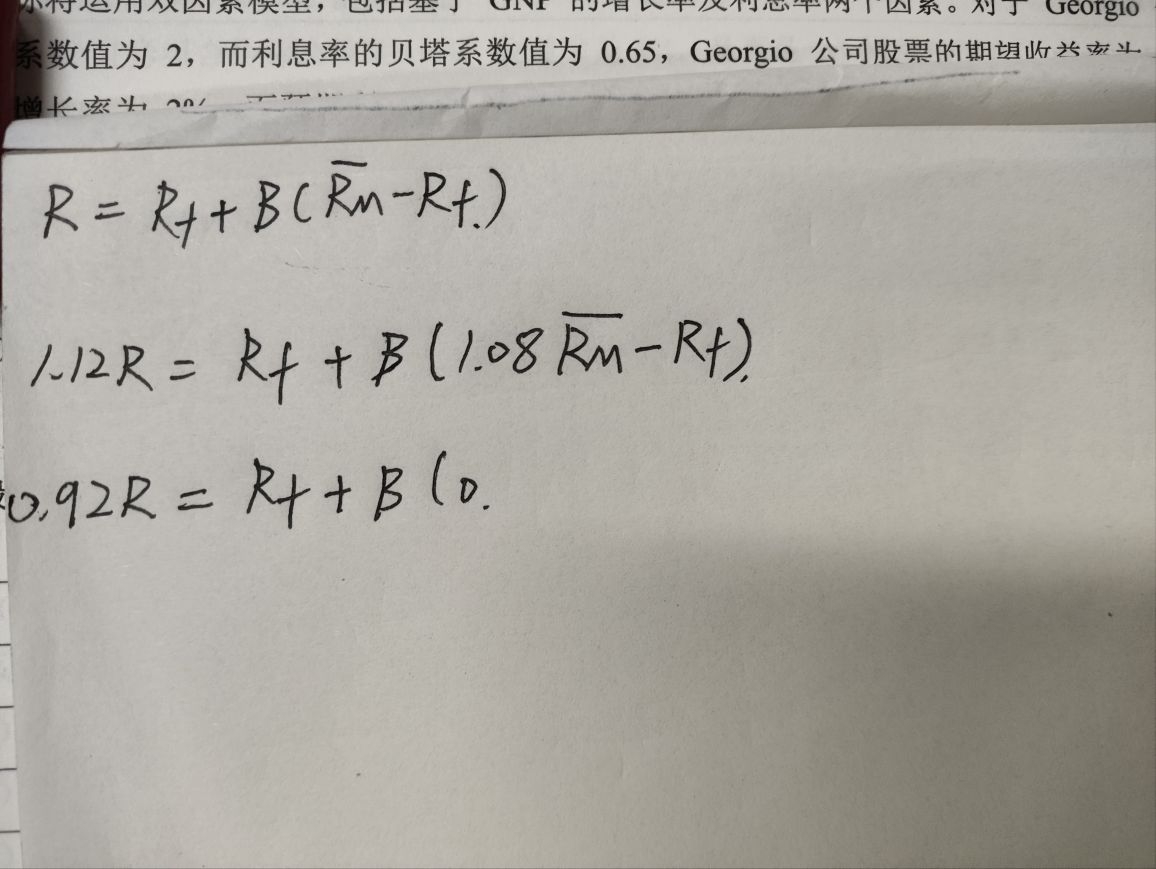 你将运用双因素模型，包括基于 GNP 的增长率及利息率两个因素。对于 Georgio
系数值为 2，而利息率的贝塔系数值为 0.65，Georgio 公司股票的期望收益率为
增长率为 2%
R = Rf + B ( R̅m - Rf.)
1.12R = Rf + B (1.08 R̅m - Rf).
0.92R = Rf + B (0.